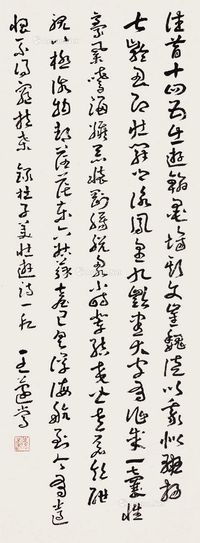 往昔十四五出遊翰墨場斯文崔魏徒以我似班揚
七齡思即壯開口詠鳳凰九齡書大字有作成一囊性
豪業嗜酒嫉惡懷剛腸脫略小時輩結交皆老蒼飲酣
視八極俗物都茫茫東下姑蘇臺已具浮海航到今有遺
恨不得窮扶桑 錄杜子美壯遊詩一 王蘧常